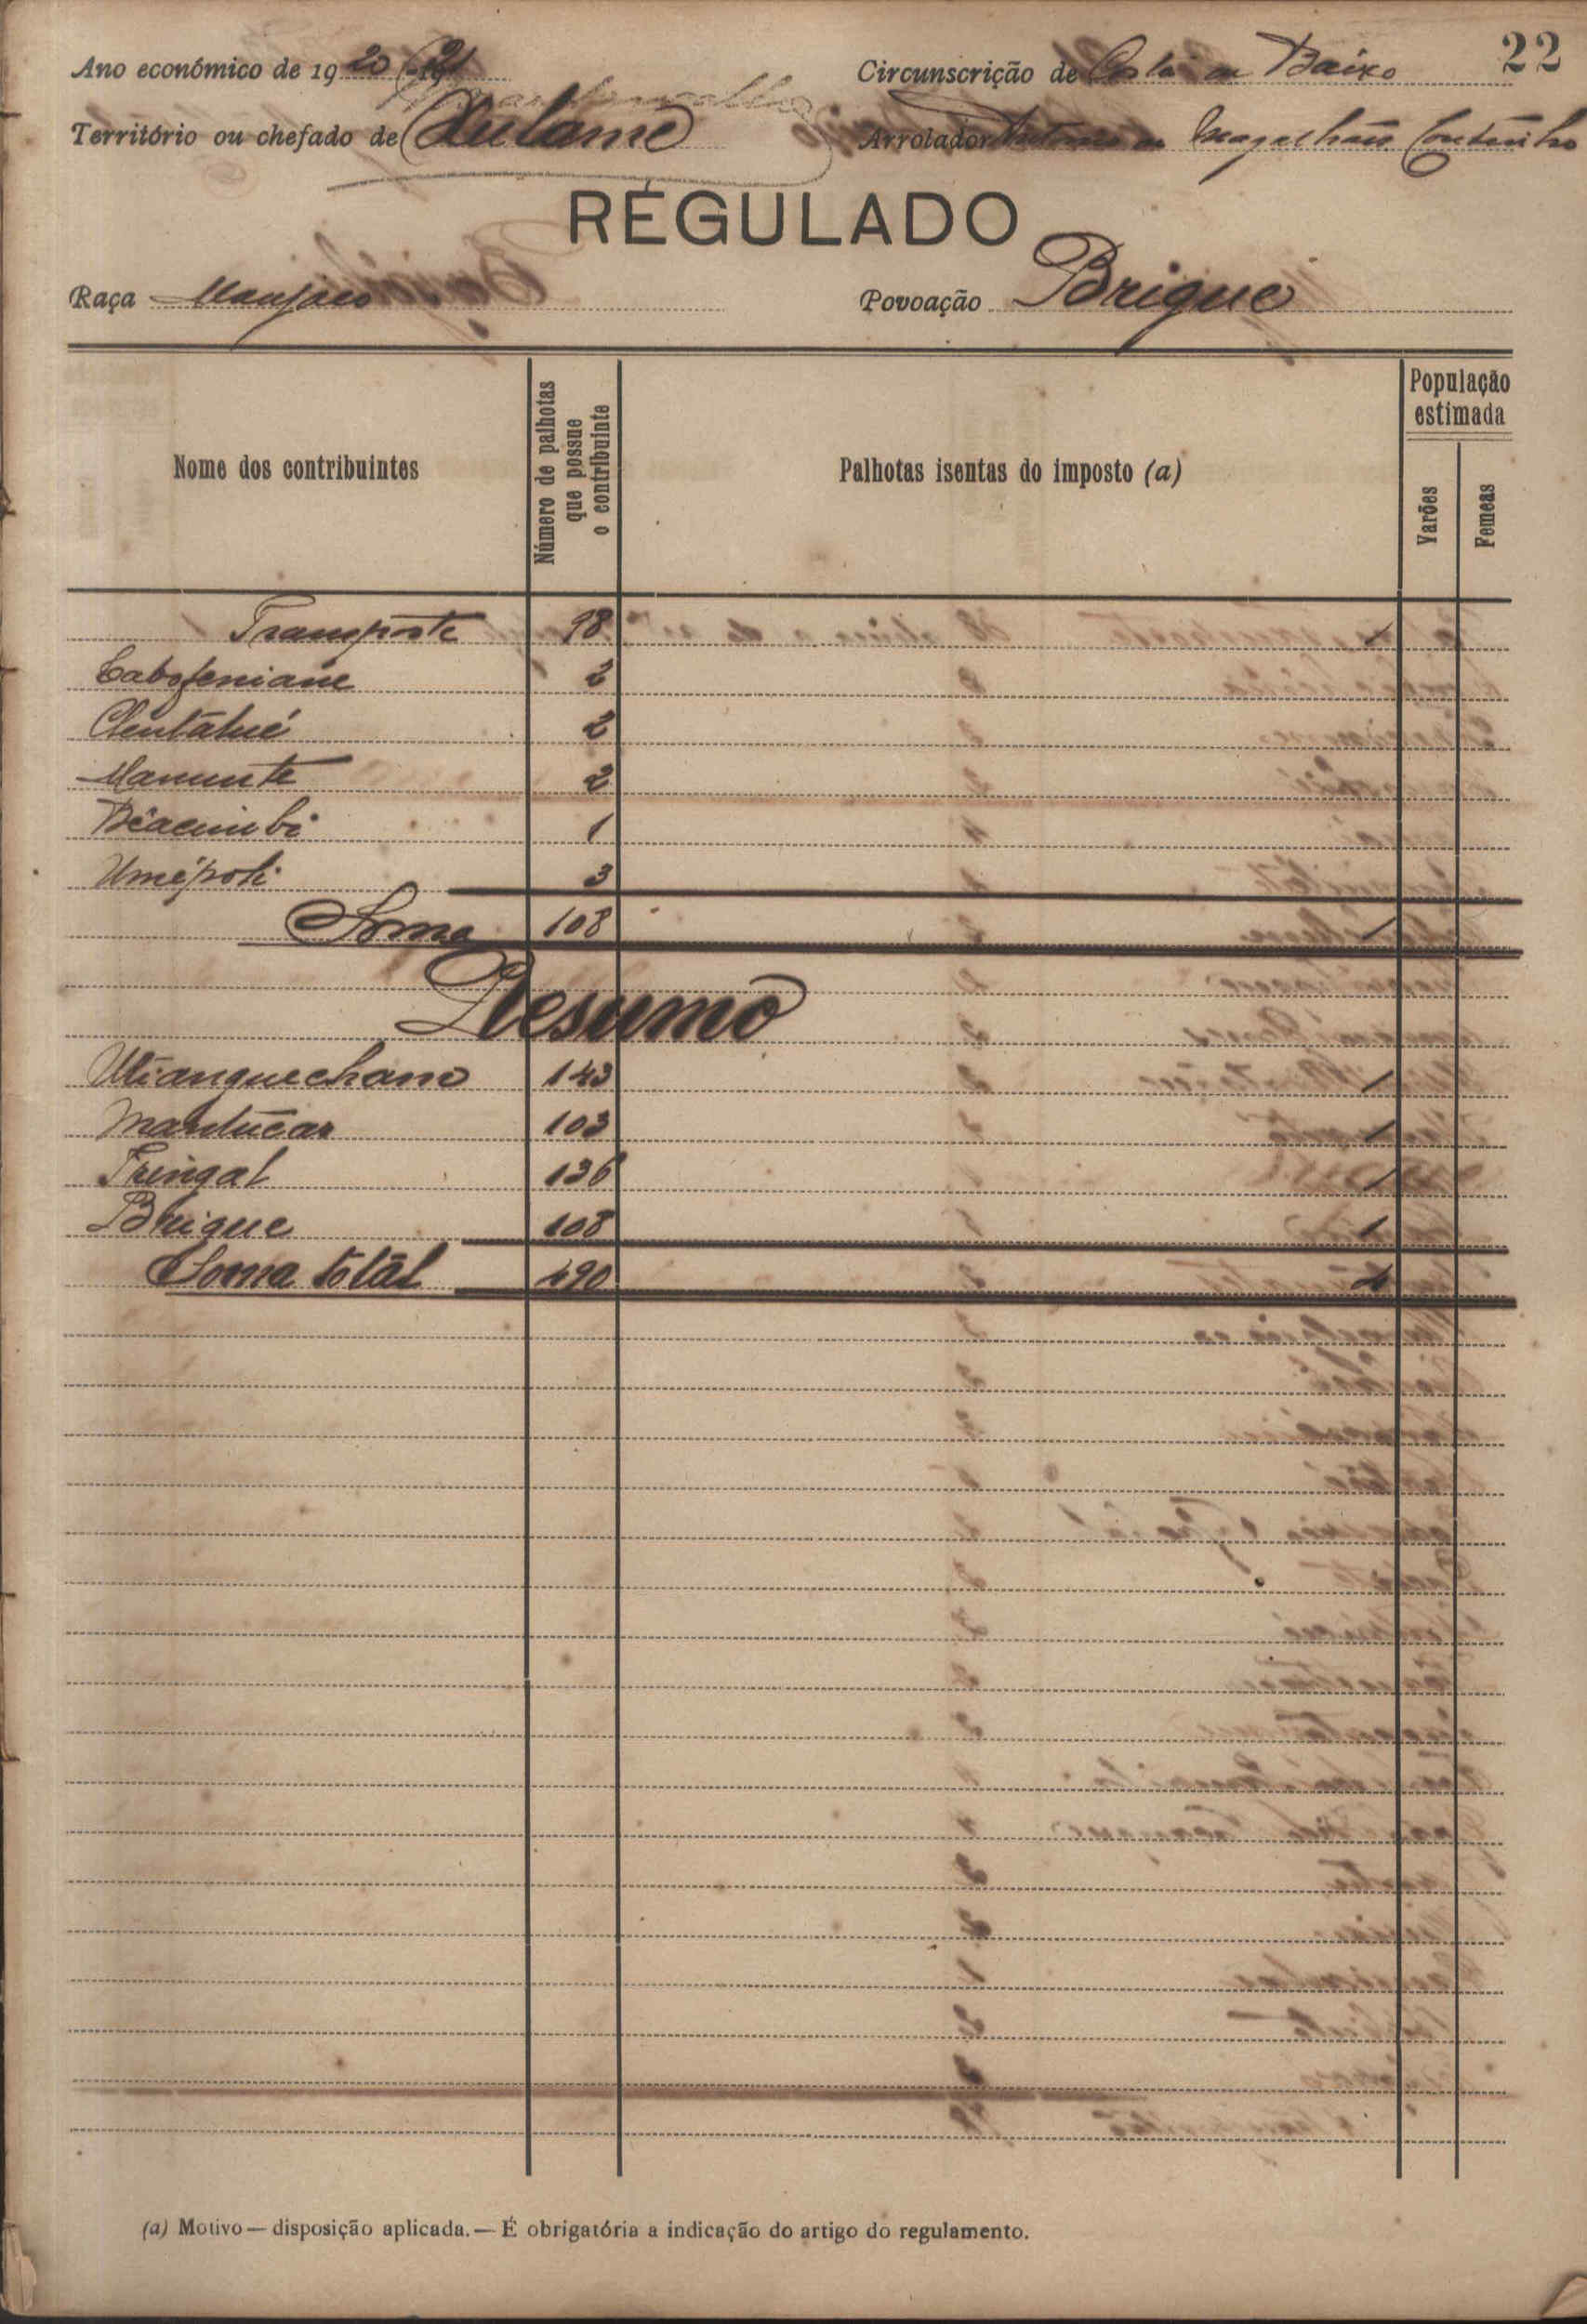 22
Ano económico de 1920-1921
Circunscrição de Costa de Baixo
Território ou chefado de
Arrolador Antonio de Magalhães Coutinho
REGULADO
Raça Manjaco
Povoação Brique
Nome dos contribuintes
Número de palhotas que possue o contribuinte
Palhotas isentas do imposto (a)
População estimada
Varões
Femeas
Transporte 98 1
Cabofeniane 2
2
Manunte 2
Biacumbi 1
Umépoli 3
Soma 108 1
Resumo
Utianquechano 143 1
103 1
Tringal 136 1
Brique 108 1
Soma total 490 4
(a) Motivo — disposição aplicada. — É obrigatória a indicação do artigo do regulamento.